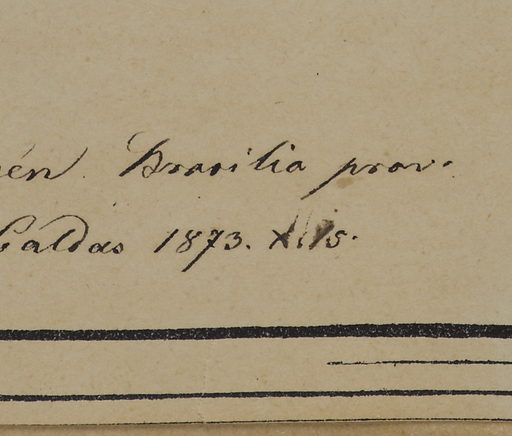 Brasilia prov.
Caldas 1873.